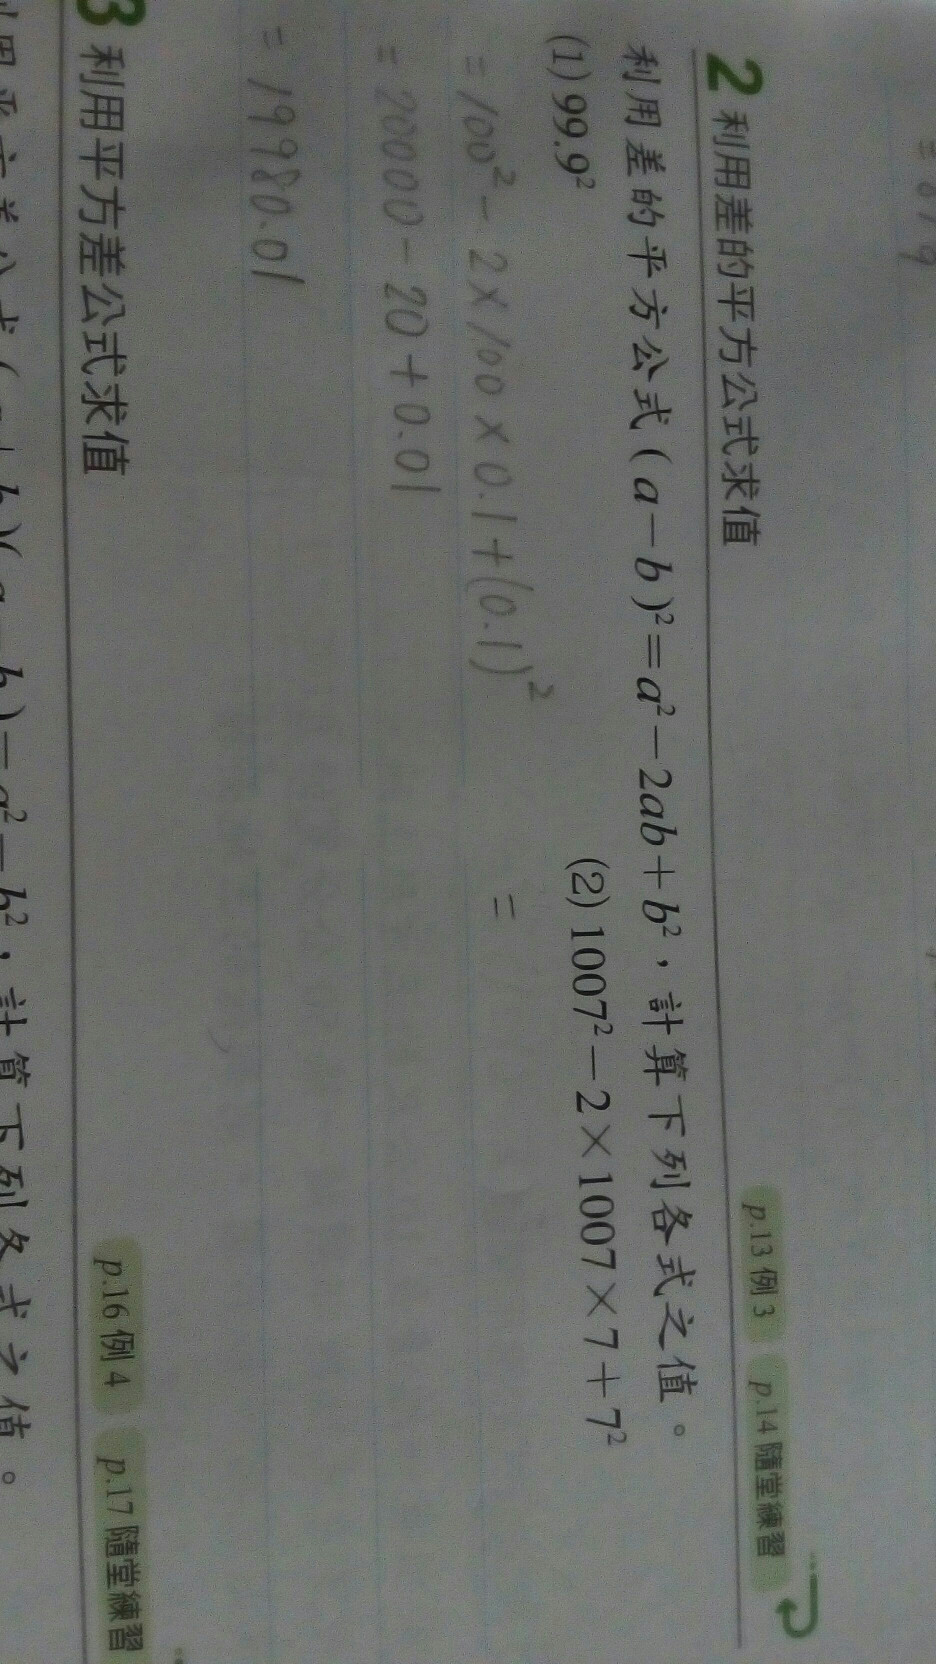 2 利用差的平方公式求值
p.13 例 3 p.14 隨堂練習
利用差的平方公式 ( a－b )²＝a²－2ab＋b²，計算下列各式之值。
(1) 99.9²
= 100² - 2 × 100 × 0.1 + (0.1)²
= 20000 - 20 + 0.01
= 19980.01
(2) 1007²－2×1007×7＋7²
=
3 利用平方差公式求值
p.16 例 4 p.17 隨堂練習
利用平方差公式 ( a＋b )( a－b )＝a²－b²，計算下列各式之值。